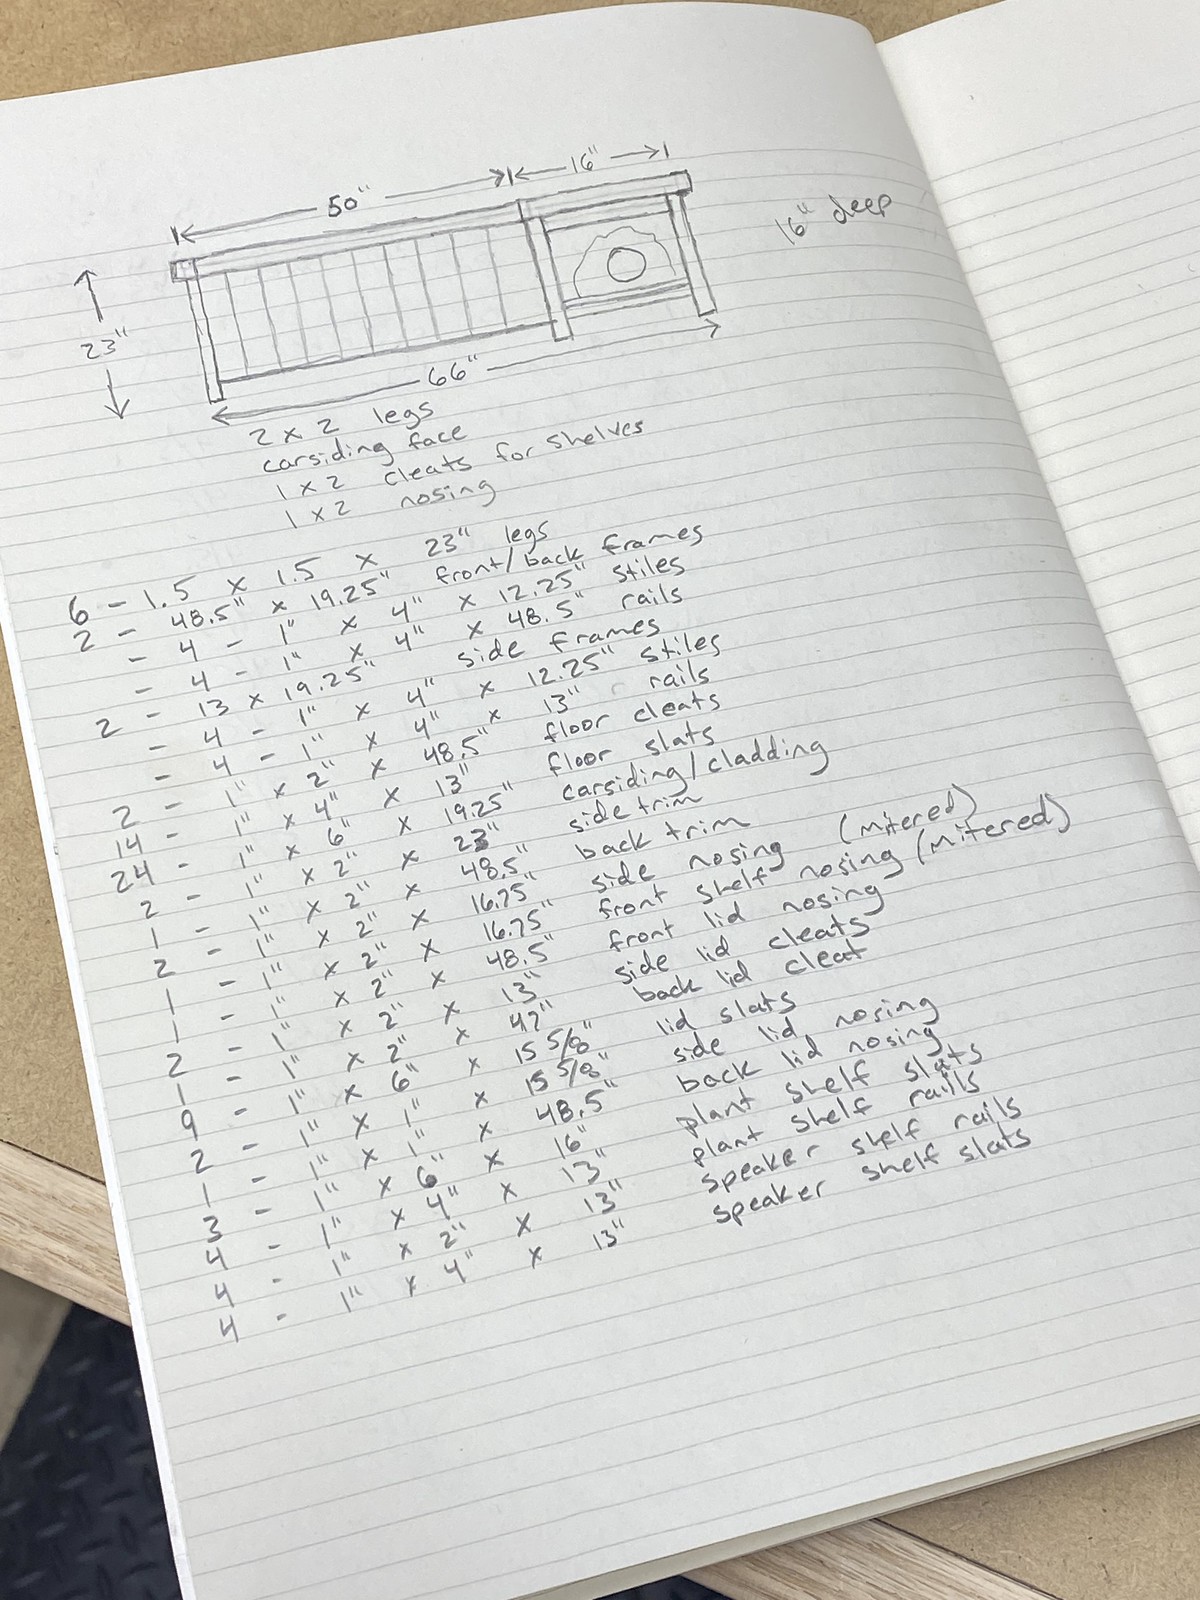 16"
50"
16" deep
23"
66"
2 x 2 legs
carsiding face
1 x 2 cleats for shelves
1 x 2 nosing
6 - 1.5 x 1.5 x 23" legs
2 - 48.5" x 19.25" front/back frames
- 4 - 1" x 4" x 12.25" stiles
- 4 - 1" x 4" x 48.5" rails
2 - 13 x 19.25" side frames
- 4 - 1" x 4" x 12.25" stiles
- 4 - 1" x 4" x 13" rails
2 - 1" x 2" x 48.5" floor cleats
14 - 1" x 4" x 13" floor slats
24 - 1" x 6" x 19.25" carsiding/cladding
2 - 1" x 2" x 23" side trim
1 - 1" x 2" x 48.5" back trim
2 - 1" x 2" x 16.75" side nosing (mitered)
1 - 1" x 2" x 16.75" front shelf nosing (mitered)
1 - 1" x 2" x 48.5" front lid nosing
2 - 1" x 2" x 13" side lid cleats
1 - 1" x 2" x 47" back lid cleat
9 - 1" x 6" x 15 5/8" lid slats
2 - 1" x 1" x 15 5/8" side lid nosing
1 - 1" x 1" x 48.5" back lid nosing
3 - 1" x 6" x 16" plant shelf slats
4 - 1" x 4" x 13" plant shelf rails
4 - 1" x 2" x 13" speaker shelf rails
4 - 1" x 4" x 13" speaker shelf slats